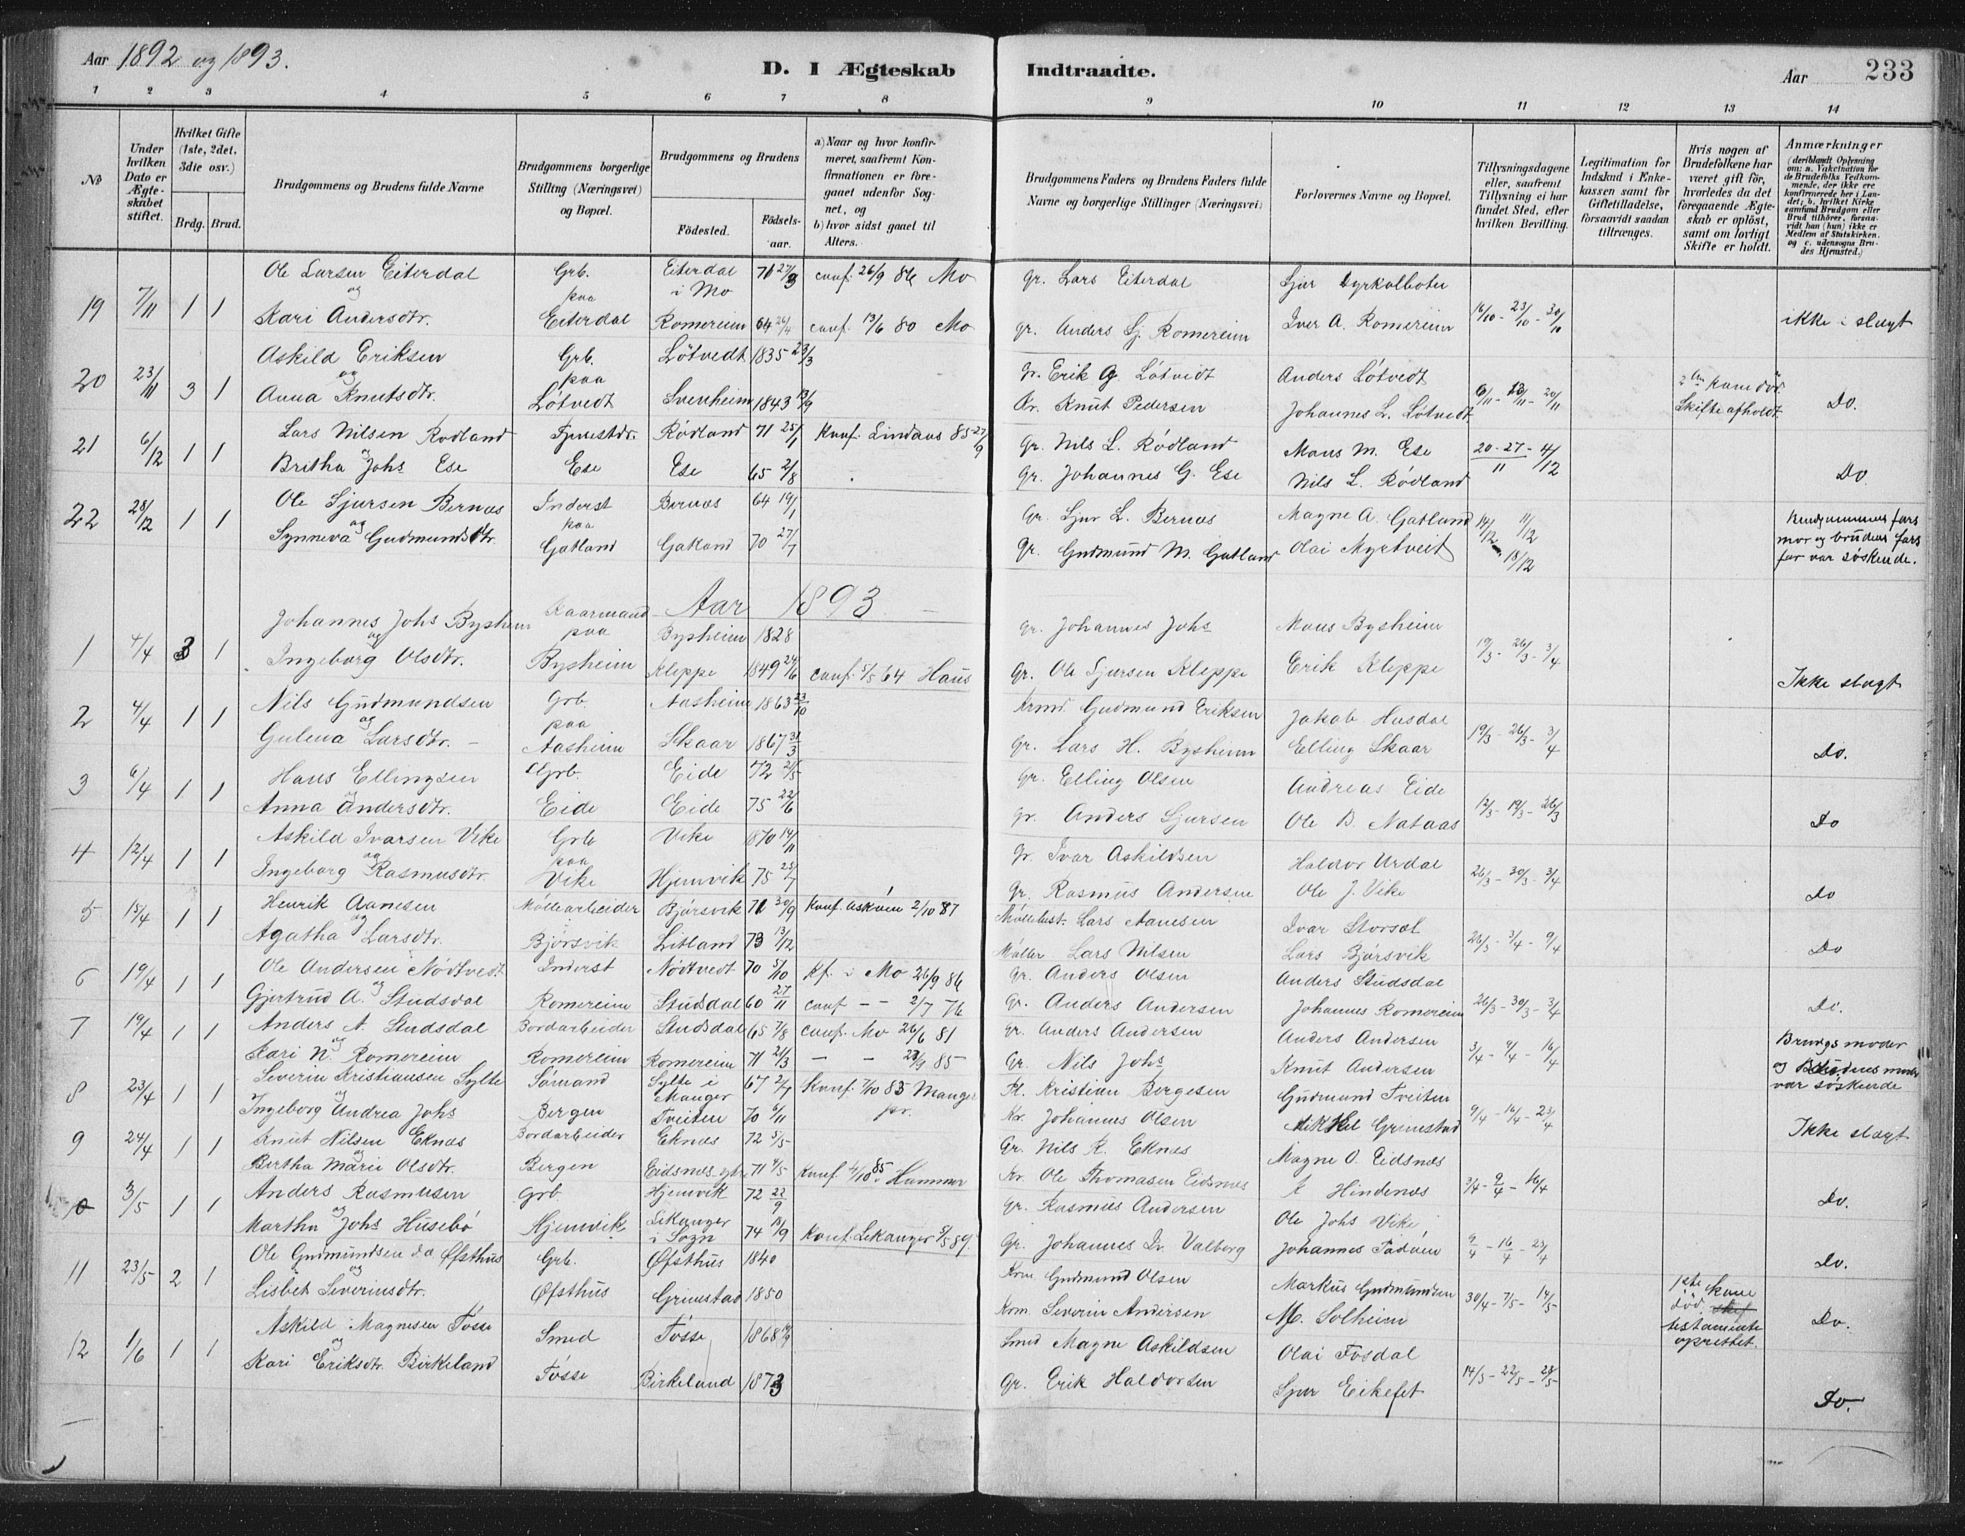 Aar 1892 og 1893.
D. I Ægteskab Indtraadte.
Aar 233
1 2 3 4 5 6 7 8 9 10 11 12 13 14
No
Under hvilken Dato er Ægteskabet stiftet.
Hvilket Gifte (1ste, 2det, 3die osv.)
Brdg. Brud.
Brudgommens og Brudens fulde Navne
Brudgommens borgerlige Stilling (Næringsvei) og Bopæl.
Brudgommens og Brudens
Fødested. Fødselsaar.
a) Naar og hvor konfirmeret, saafremt Konfirmationen er foregaaet udenfor Sognet, og
b) hvor sidst gaaet til Alters.
Brudgommens Faders og Brudens Faders fulde Navne og borgerlige Stillinger (Næringsvei)
Forlovernes Navne og Bopæl.
Tillysningsdagene eller, saafremt Tillysning ei har fundet Sted, efter hvilken Bevilling.
Legitimation for Indskud i Enkekassen samt for Giftetilladelse, forsaavidt saadan tiltrænges.
Hvis nogen af Brudefolkene har været gift før, hvorledes da det foregaaende Ægteskab er opløst, samt om lovligt Skifte er holdt.
Anmærkninger (deriblandt Oplysning om: a. Vakcination for de Brudefolks Vedkommende, der ikke ere konfirmerede her i Landet; b. hvilket Kirkesamfund Brudgom eller Brud tilhører, forsaavidt han (hun) ikke er Medlem af Statskirken, og c. udensogns Brudes Hjemsted.)
Ole Larsen Eiterdal Grb. Eiterdal i Mo 71 27/3 conf. 26/9 86 Mo Gr. Lars Eiterdal Sjur Dyrkolboten
19 7/11 1 1 og paa 16/10 - 23/10 - 30/10 ikke i slægt
Kari Andersdtr. Eiterdal Romereim 64 26/4 conf. 13/6 80 Mo gr. Anders Sj. Romereim Iver A. Romereim
Askild Eriksen Grb. Løtvedt 1835 23/3 Gr. Erik A. Løtvedt Anders Løtvedt
20 23/11 3 1 og paa 6/11 - 13/11 - 20/11 2den kone død. Skifte afholdt. Do.
Anna Knutsdtr. Løtvedt Svenheim 1843 13/9 Kr. Knut Pedersen Johannes L. Løtvedt
Lars Nilsen Rødland Tjenestdr. Rødland 71 25/1 Konf. Lindaas 85 27/9 Gr. Nils L. Rødland Mons M. Ese
21 6/12 1 1 og 20 - 27/11 - 4/12 Do
Britha Johs Ese Ese Ese 65 2/8 Gr. Johannes G. Ese Nils L. Rødland
Ole Sjursen Bernæs Inderst Bernæs 64 19/1 Gr. Sjur L. Bernæs Magne A. Gatland
22 28/12 1 1 og paa 4/12 11/12 18/12 Brudgommens fars mor og brudens fars far var søskende.
Synneva Gudmundsdtr. Gatland Gatland 70 27/7 Gr. Gudmund M. Gatland Olai Myrtveit
Aar 1893
Johannes Johs Bysheim Kaarmand Bysheim 1828 Gr. Johannes Johs Mons Bysheim
1 4/4 3 1 og paa 19/3 - 26/3 - 3/4 Ikke slægt
Ingeborg Olsdtr. Bysheim Kleppe 1849 24/6 conf. 5/5 64 Haus Gr. Ole Sjursen Kleppe Erik Kleppe
Nils Gudmundsen Grb. Aasheim 1863 23/10 Krmd Gudmund Eriksen Jakob Husdal
2 4/4 1 1 og paa 19/3 - 26/3 - 3/4 Do.
Gulena Larsdtr. Aasheim Skaar 1867 31/3 Gr. Lars H. Bysheim Elling Skaar
Hans Ellingsen Grb. Eide 72 21/5 Gr. Elling Olsen Andreas Eide
3 6/4 1 1 og 12/3 - 19/3 - 26/3 Do
Anna Andersdtr. Eide Eide 75 22/6 Gr. Anders Sjursen Ole B. Nataas
Askild Ivarsen Vike Grb Vike 1870 14/11 Gr. Ivar Askildsen Haldor Urdal
4 12/4 1 1 og paa 26/3 - 30/3 - 3/4 Do
Ingeborg Rasmusdtr. Vike Hjemvik 75 25/7 Gr. Rasmus Andersen Ole J. Vike
Henrik Aanesen Møllearbeider Bjørsvik 71 30/9 Konf. Askøen 2/10 87 Møllebest. Lars Aanesen Ivar Storset
5 15/4 1 1 og 26/3 - 3/4 - 9/4 Do
Agatha Larsdtr. Bjørsvik Litland 73 13/12 Møller Lars Nilsen Lars Bjørsvik
Ole Andersen Nødtvedt Inderst Nødtvedt 70 5/10 Kf. i Mo 26/9 86 Gr. Anders Olsen Anders Studsdal
6 19/4 1 1 og 26/3 - 30/3 - 3/4 Do.
Gjertrud A. Studsdal Romereim Studsdal 60 27/11 conf - - 2/7 76 Gr. Anders Andersen Johannes Romereim
Anders A. Studsdal Bordarbeider Studsdal 65 7/8 conf. Mo 26/6 81 Gr. Anders Andersen Anders Andersen
7 19/4 1 1 og 3/4 - 9/4 - 16/4 Brudgs moder og Brudens moder var søskende
Kari N. Romereim Romereim Romereim 71 21/3 - - 27/9 85 - Gr. Nils Johs Knut Andersen
Severin Kristiansen Sylte Sømand Sylte i Manger 67 2/7 Konf. 7/10 83 Manger pr. Pl. Kristian Børgesen Gudmund Tveiten
8 23/4 1 1 og 9/4 - 16/4 - 23/4 Ikke slægt
Ingeborg Andrea Johs Bergen Tveiten 70 6/11 Kr. Johannes Olsen Mikkel Grimstad
Knut Nilsen Eknæs Bordarbeider Eknæs 72 5/5 Gr. Nils K. Eknæs Magne O. Eidsnæs
9 24/4 1 1 og 3/4 - 9/4 - 16/4 Do.
Bertha Marie Olsdtr. Bergen Eidsnes 71 4/5 Konf. 4/10 85 Hammer Kr. Ole Thomasen Eidsnæs Hindenæs
Anders Rasmusen Grb. Hjemvik 72 22/9 Gr. Rasmus Andersen Ole Johs Vike
10 3/5 1 1 og 9/4 - 16/4 - 23/4 Do.
Martha Johs Husebø Hjemvik Lekanger i Sogn 74 13/9 Konf. Lekanger 5/5 89. Gr. Johannes Iv. Valborg Johannes Tadvin
Ole Gudmundsen Øfsthus Grb. Øfsthus 1840 Krm Gudmund Olsen Markus Gudmundsen
11 23/5 2 1 og 30/4 - 7/5 - 14/5 1ste kone død. testamente oprettet. Do.
Lisbet Severinsdtr. Øfsthus Grimstad 1850 Krm. Severin Andersen M. Solheim
Askild Magnesen Tosse Smed Tosse 1868 Smed Magne Askildsen Olai Fosdal
12 1/6 1 1 og 14/5 - 22/5 - 28/5 Do.
Kari Eriksdtr. Birkeland Tosse Birkeland 1873 Gr. Erik Haldorsen Sjur Eikefet